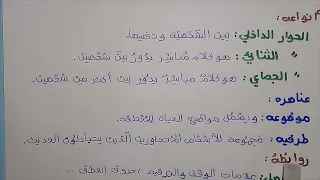 أنواعه:
الحوار الداخلي: بين الشخصية ونفسها.
" الثنائي: هو كلام مباشر يدور بين شخصين.
" الجماعي: هو كلام مباشر يدور بين أكثر من شخصين.
عناصره:
موضوعه: ويشمل مواضيع الحياة المختلفة.
طرفيه: مجموعة الأشخاص المتحاورين الذين يتبادلون الحديث.
روابطه:
علامات الوقف والترقيم، حروف العطف...